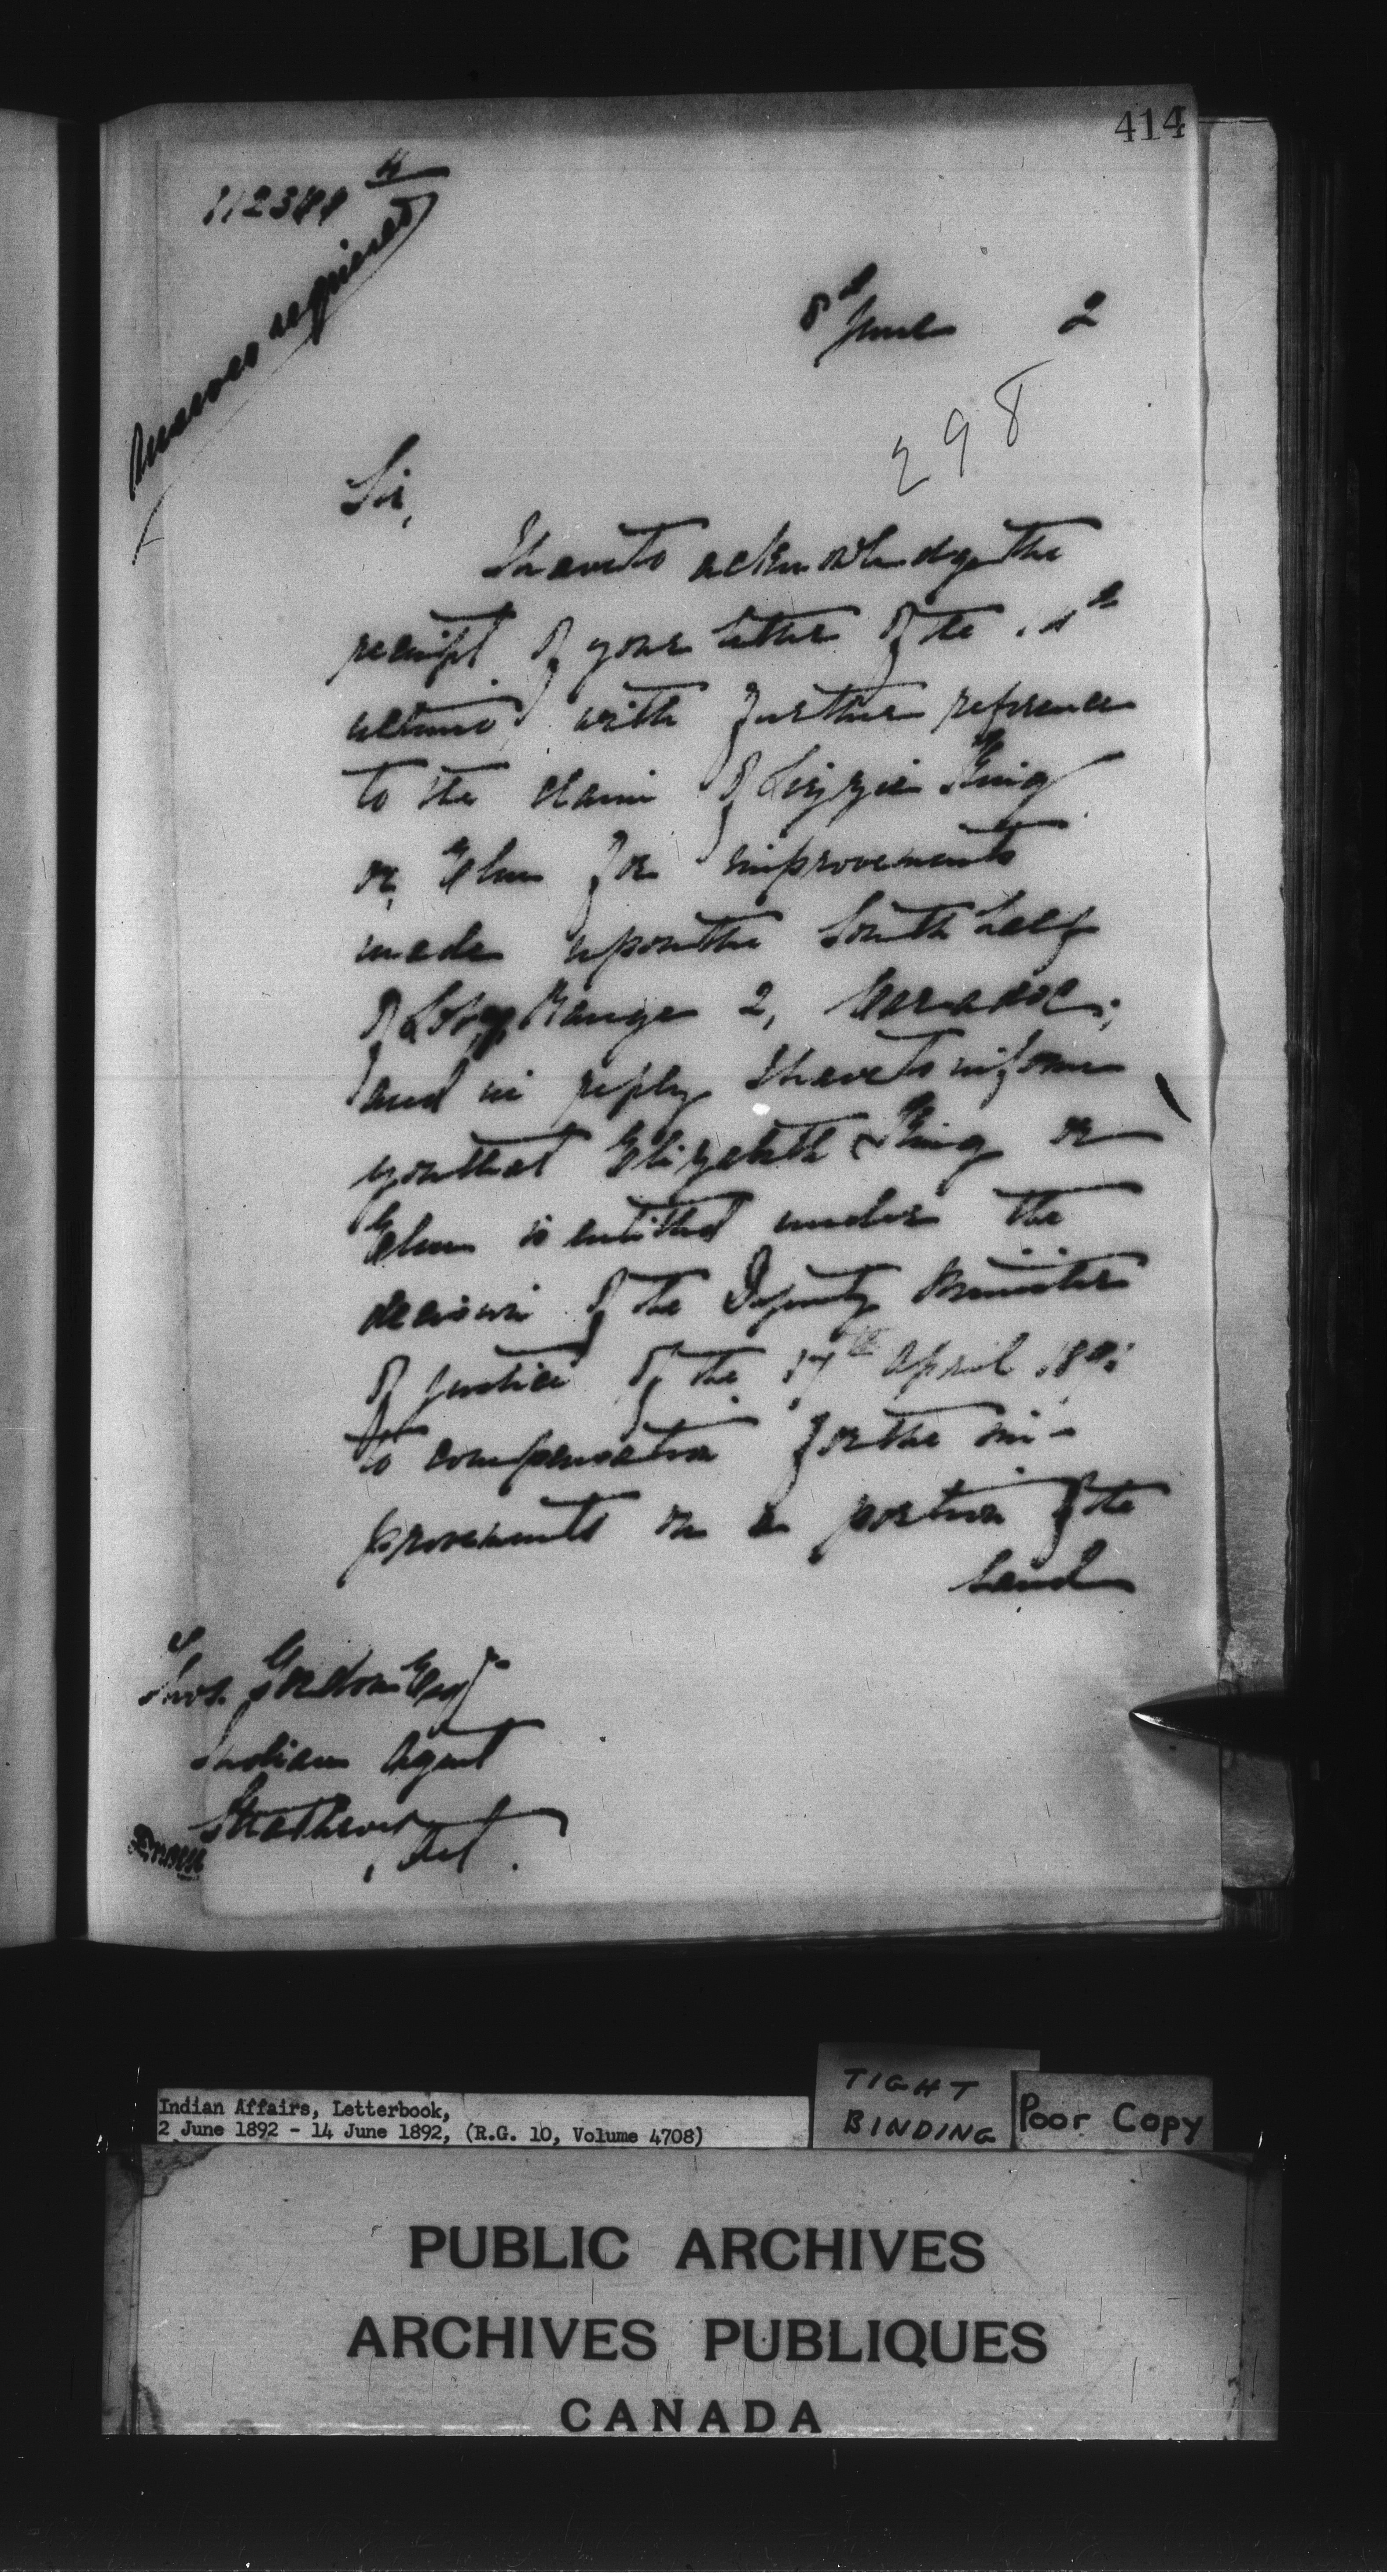 414
Answer required
8th June 2
298
Sir,
I have to acknowledge the
receipt of your letter of the
ultimo with further reference
to the claim of Lizzie King
or Elm for improvements
made upon the South half
of Lot Range 2, Caradoc;
and in reply I have to inform
you that Elizabeth King or
Elm is entitled under the
decision of the Deputy Minister
of Justice of the 17th April
to compensation for the im-
provements on a portion of the
land
Thos. Gordon Esqr
Indian Agent
Strathroy
Ont.
Indian Affairs, Letterbook,
2 June 1892 - 14 June 1892, (R.G. 10, Volume 4708)
TIGHT
BINDING
Poor Copy
PUBLIC ARCHIVES
ARCHIVES PUBLIQUES
CANADA